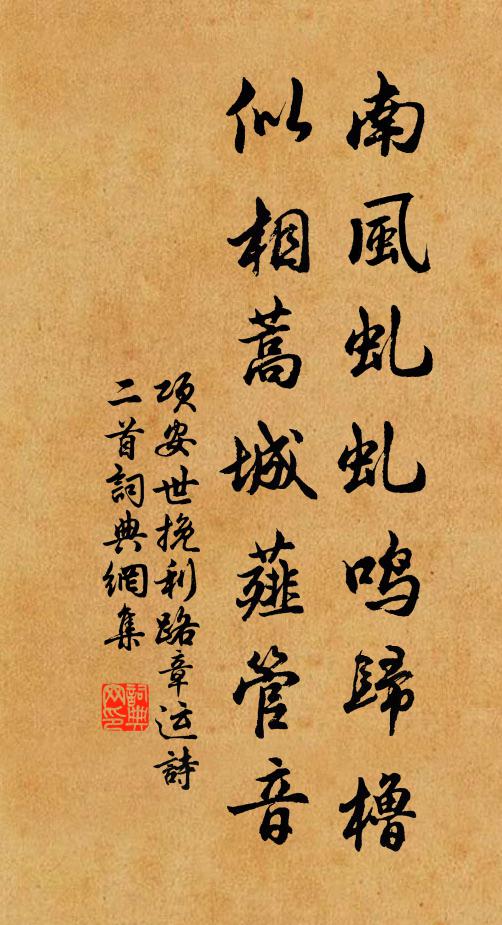 南風虬虬鳴歸櫓
似相蒿城薤管音
項安世挽利路章运詩
二首詞典網集
詞典
网印